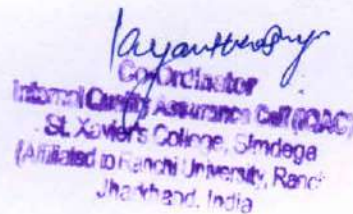 Co-Ordinator
Internal Quality Assurance Cell (IQAC)
St. Xavier's College, Simdega
(Affiliated to Ranchi University, Ranchi
Jharkhand, India